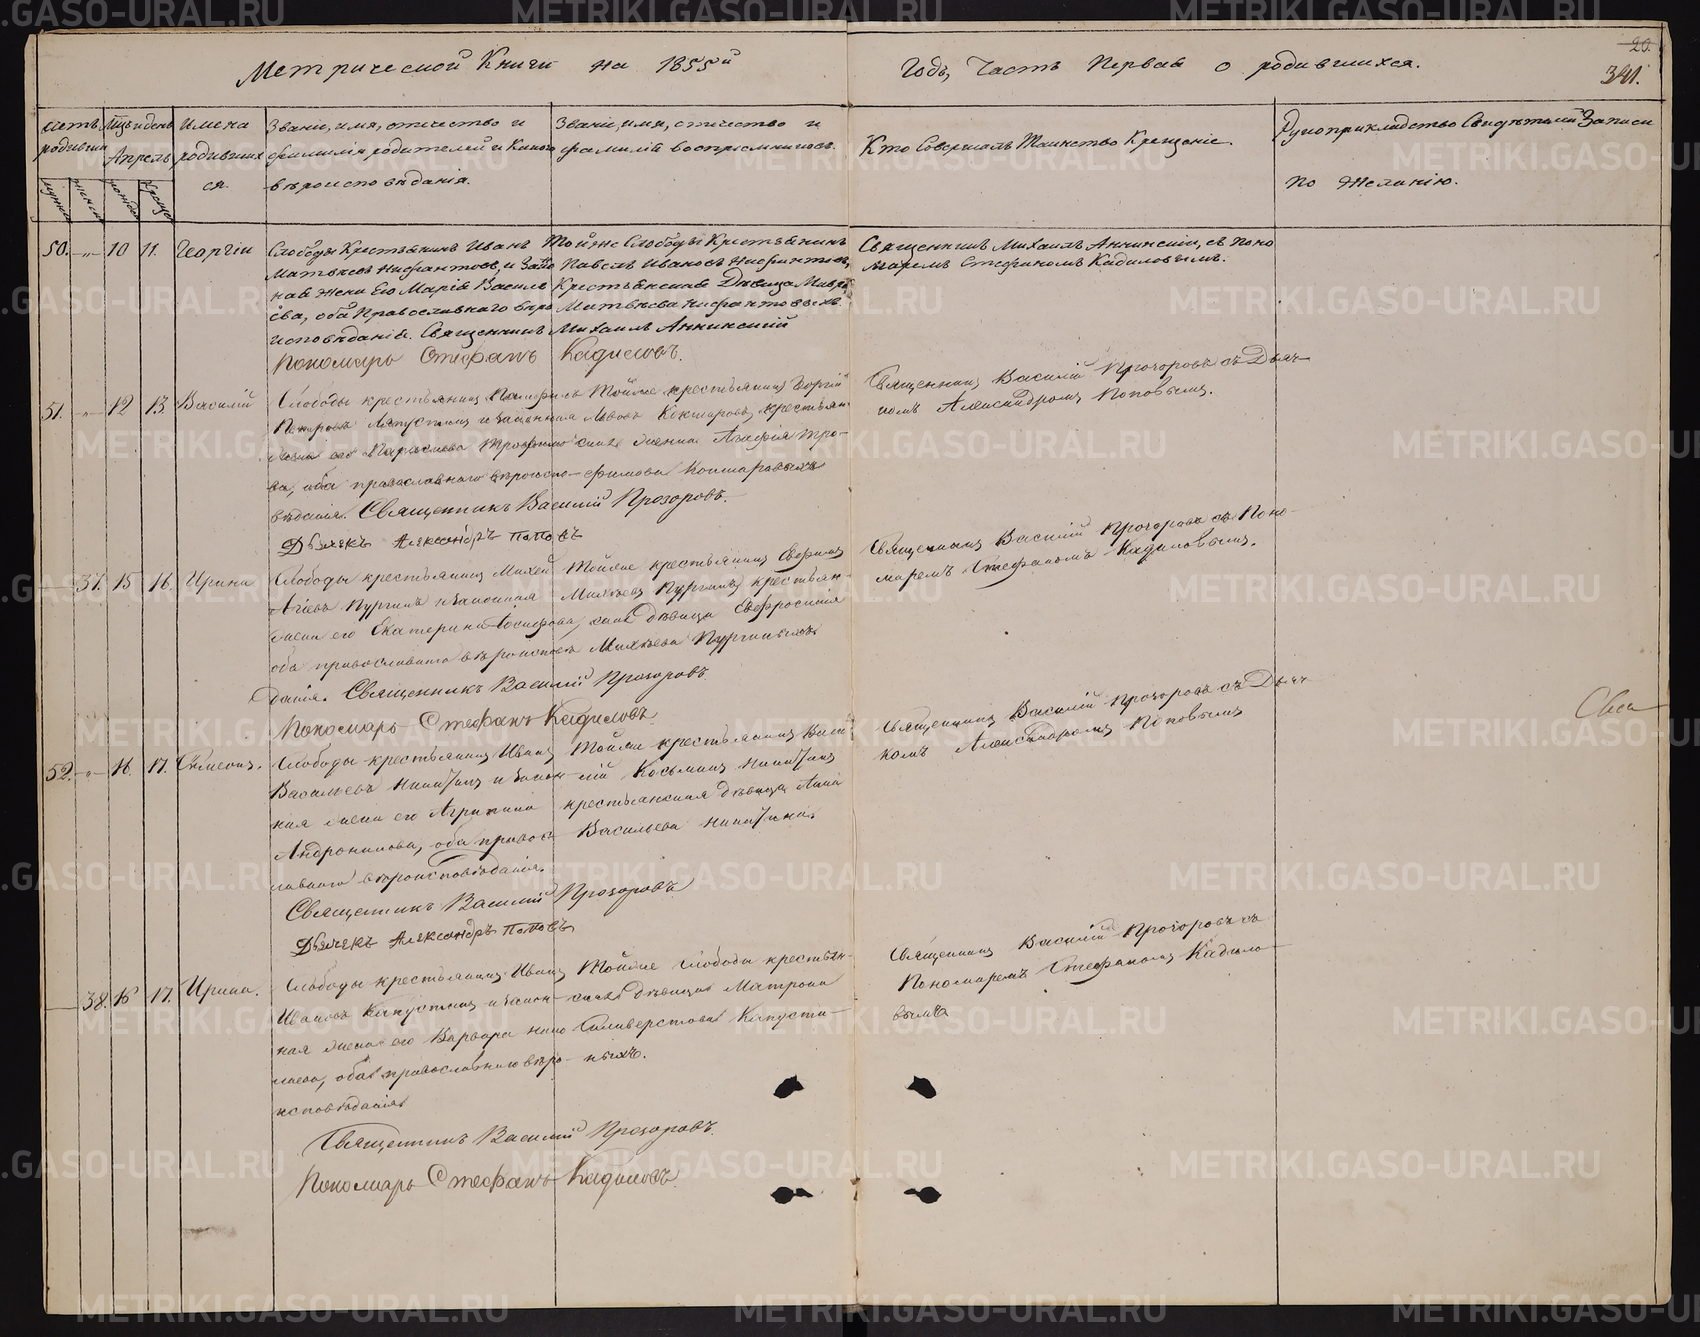 Метрической Книги на 1855й
Годъ, Часть Первая о родившихся.
20.
341.
родивши
Апрель
Имена
родивших
ся.
Званіе, имя, отчество и
фамилія родителей и Какого
вѣроисповѣданія.
Званіе, имя, отчество и
фамилія воспріемниковъ.
Кто Совершалъ Таинство Крещеніе.
Рукоприкладство Свидѣтелей Записи
по желанію.
50. 10 11. Георгій
Слободы Крестьянинъ Иванъ
Матвѣевъ Нифантовъ, и Зако
ная жена Его Марія Василь
ева, оба Православнаго вѣро
исповѣданія. Священникъ Михаилъ Аннинскій
Пономарь Стефанъ Кадиловъ.
Тойже Слободы Крестьянинъ
Павелъ Ивановъ Нифантовъ,
Крестьянская Дѣвица Мавра
Матвѣева Нифантовыхъ
Священникъ Михаилъ Аннинскій, съ Поно
маремъ Стефаномъ Кадиловымъ.
51. 12 13. Василій
Слободы крестьянинъ
ва, оба православнаго вѣроиспо-
вѣданія. Священникъ Василій Прозоровъ.
Дьячекъ Александръ Поповъ
Тойже крестьянинъ Георгій
Кокшаровъ, крестьян-
ская Агафія Тро-
фимова Кокшаровыхъ
Священникъ Василій Прозоровъ съ Дьяч-
комъ Александромъ Поповымъ.
37. 15 16. Ирина
Слободы крестьянинъ Михей
Пургинъ и законная
жена его Екатерина Іосифова,
оба православнаго вѣроисповѣ
данія. Священникъ Василій Прозоровъ
Пономарь Стефанъ Кадиловъ
Тойже крестьянинъ Ефремъ
Михѣевъ Пургинъ, крестьян-
ская дѣвица Евфросинія
Михѣева Пургиныхъ
Священникъ Василій Прозоровъ съ Поно-
маремъ Стефаномъ Кадиловымъ.
52. 16. 17. Симеонъ.
Слободы крестьянинъ Иванъ
Васильевъ Никитинъ и закон-
ная жена его Агрипина
Андроникова, оба правос
лавнаго вѣроисповѣданія.
Священникъ Василій Прозоровъ
Дьячекъ Александръ Поповъ
Тойже крестьянинъ Васи
лій Косьминъ Никитинъ
крестьянская дѣвица Анна
Васильева Никитина.
Священникъ Василій Прозоровъ съ Дьяч-
комъ Александромъ Поповымъ
38. 16 17. Ирина.
Слободы крестьянинъ Иванъ
Ивановъ Капустинъ и закон-
ная жена его Варвара
лаева, оба православнаго вѣро-
исповѣданія
Священникъ Василій Прозоровъ.
Пономарь Стефанъ Кадиловъ.
Тойже Слободы крестьян-
ская дѣвица Матрона
Силиверстова Капусти-
ныхъ.
Священникъ Василій Прозоровъ съ
Пономаремъ Стефаномъ Кадило-
вымъ
METRIKI.GASO-URAL.RU